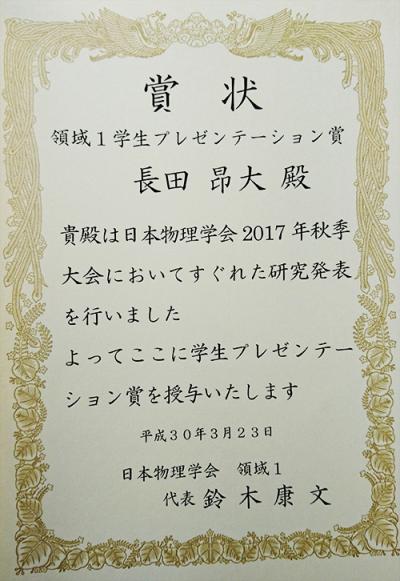 賞 状
領域１学生プレゼンテーション賞
長田 昂大 殿
貴殿は日本物理学会2017年秋季
大会においてすぐれた研究発表
を行いました
よってここに学生プレゼンテー
ション賞を授与いたします
平成３０年３月２３日
日本物理学会 領域１
代表 鈴木康文